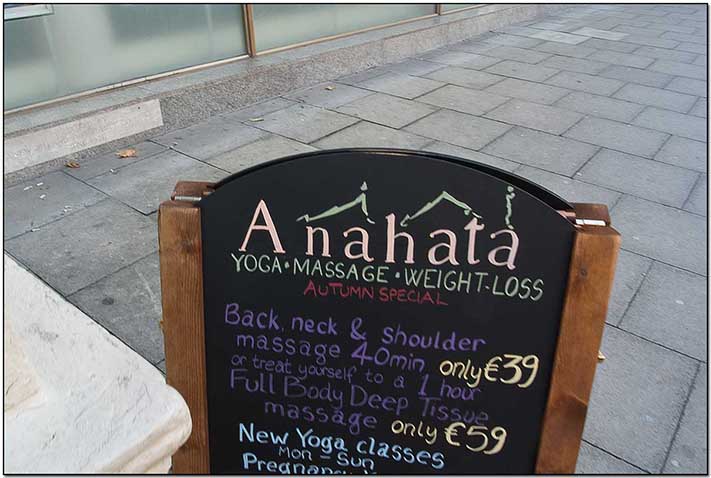 Anahata
YOGA • MASSAGE • WEIGHT-LOSS
AUTUMN SPECIAL
Back, neck & shoulder
massage 40min only €39
or treat yourself to a 1 hour
Full Body Deep Tissue
massage only €59
New Yoga classes
Mon - Sun
Pregnancy